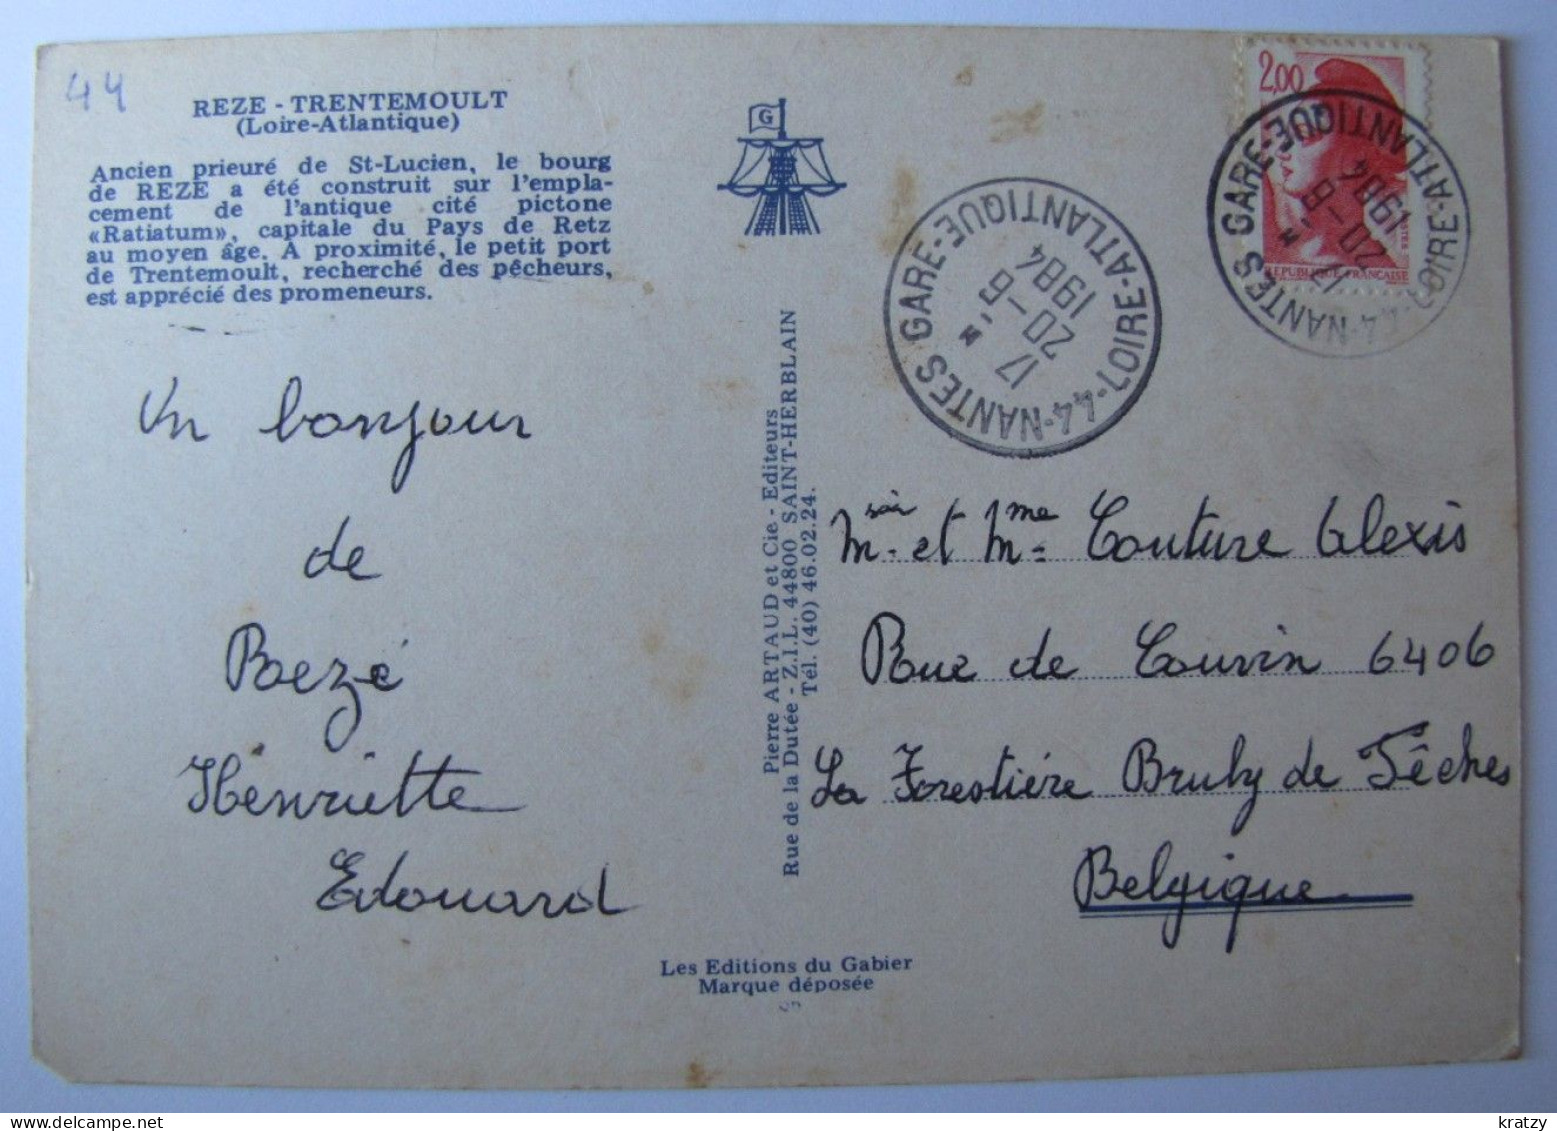 44
REZE - TRENTEMOULT
(Loire-Atlantique)
Ancien prieuré de St-Lucien, le bourg
de REZE a été construit sur l'empla-
cement de l'antique cité pictone
«Ratiatum», capitale du Pays de Retz
au moyen âge. A proximité, le petit port
de Trentemoult, recherché des pêcheurs,
est apprécié des promeneurs.
Un bonjour
de
Rezé
Henriette
Edouard
G
Pierre ARTAUD et Cie - Editeurs
Rue de la Dutée - Z.I.L. 44800 SAINT-HERBLAIN
Tél. (40) 46.02.24.
Les Editions du Gabier
Marque déposée
44-NANTES GARE-LOIRE-ATLANTIQUE
17
20-6
1984
2,00
REPUBLIQUE FRANÇAISE
POSTES
44-NANTES GARE-LOIRE-ATLANTIQUE
17
20-6
1984
Msieur et Mme Couture Alexis
Rue de Couvin 6406
La Forestière Bruly de Pêches
Belgique
kratzy